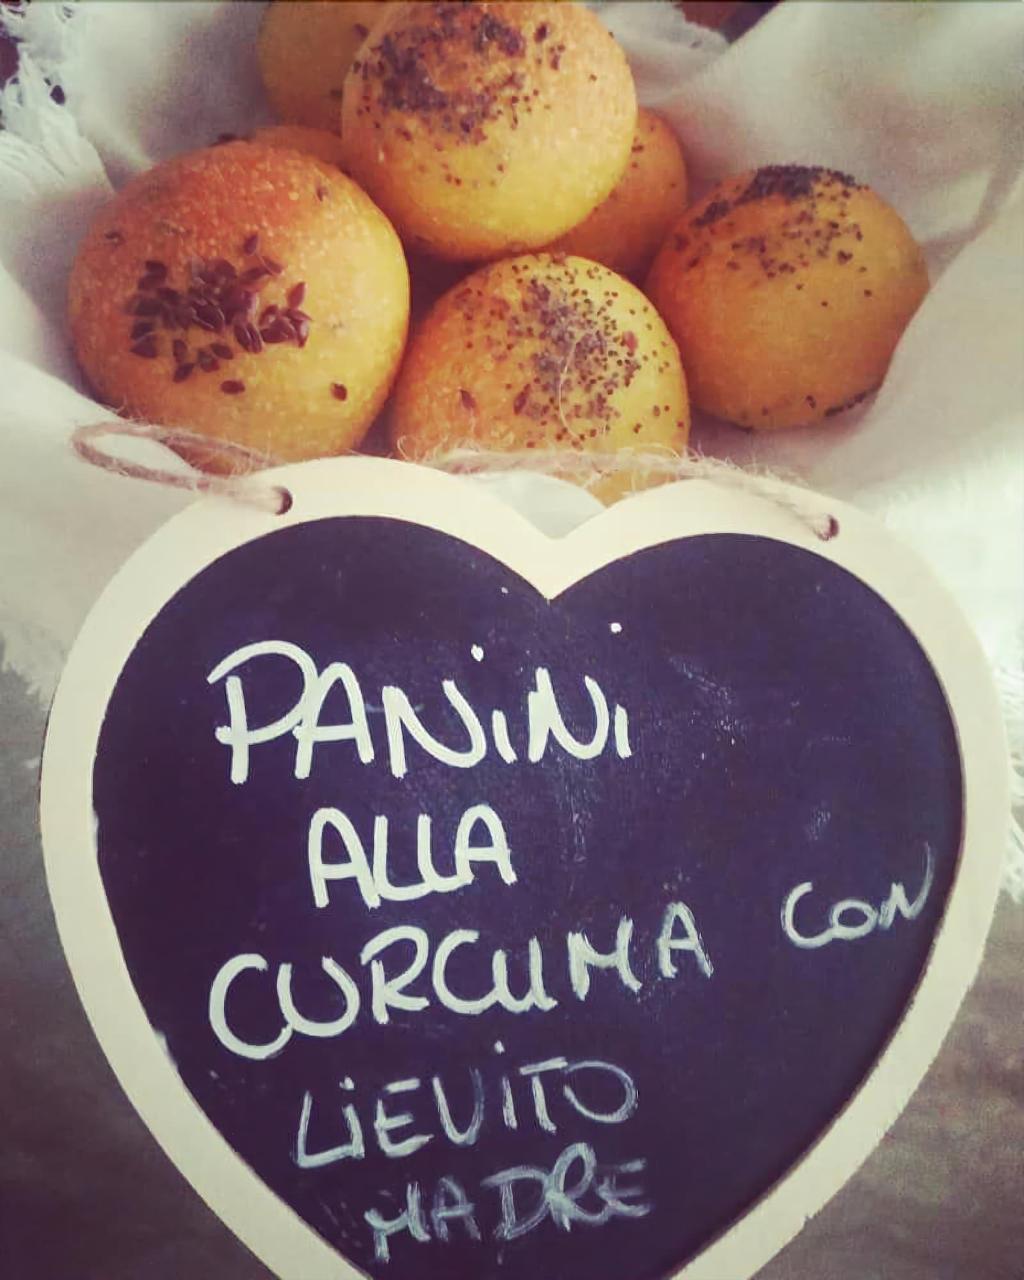 PANiNi
ALLA
CURCUMA CON
LiEViTO
MADRE